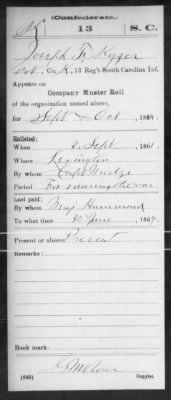 (Confederate.)
K 13 S.C.
Joseph F. Kyzer
Pvt., Co. K, 13 Reg't South Carolina Inf.
Appears on
Company Muster Roll
of the organization named above,
for Sept & Oct, 1864.
Enlisted:
When 3. Sept, 1861.
Where Lexington
By whom Capt
Period
Last paid:
By whom Maj Hammond
To what time 30 June, 1864.
Present or absent Present
Remarks:
Book mark:
(642) Copyist.